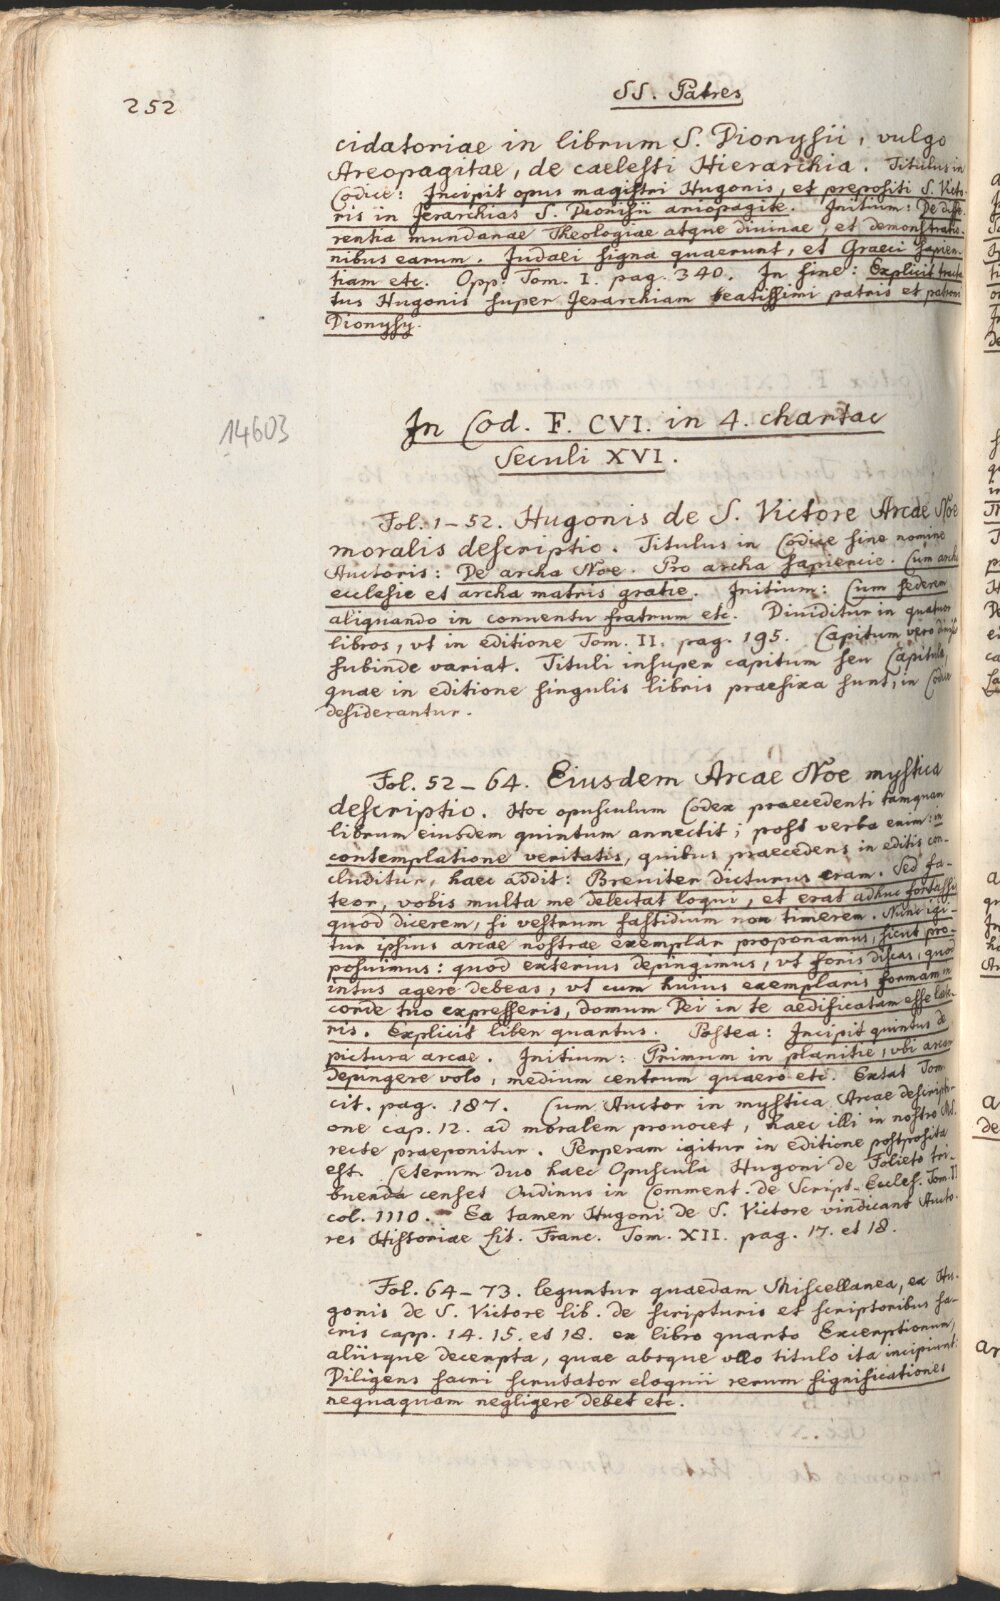 252
SS. Patres
cidatoriae in librum S. Dionysii, vulgo
Areopagitae, de caelesti Hierarchia. Titulus in
Codice: Incipit opus magistri Hugonis, et prepositi S. Victo-
ris in Jerarchias S. Dionisii ariopagite. Initium: De diffe-
rentia mundanae Theologiae atque divinae, et demonstratio-
nibus earum. Judaei signa quaerunt, et Graeci sapien-
tiam etc. Opp. Tom. I. pag. 340. In fine: Explicit tracta
tus Hugonis super Jerarchiam beatissimi patris et patroni
Dionysy.
14603
In Cod. F. CVI. in 4. chartac
Seculi XVI.
Fol. 1-52. Hugonis de S. Victore Arcae Noe
moralis descriptio. Titulus in Codice sine nomine
Auctoris: De archa Noe. Pro archa sapiencie. Cum archa
ecclesie et archa matris gratie. Initium: Cum sederem
aliquando in conventu fratrum etc. Dividitur in quatuor
libros, ut in editione Tom. II. pag. 195. Capitum vero
subinde variat. Tituli insuper capitum seu Capitula,
quae in editione singulis libris praefixa sunt, in Codice
desiderantur.
Fol. 52-64. Eiusdem Arcae Noe mystica
descriptio. Hoc opusculum Codex praecedenti tamquam
librum eiusdem quintum annectit; post verba enim: in
contemplatione veritatis, quibus praecedens in editis con-
cluditur, haec addit: Breviter dicturus eram. Sed fa-
teor, vobis multa me delectat loqui, et erat adhuc fortassis
quod dicerem, si vestrum fastidium non timerem. Nunc igi-
tur ipsius arcae nostrae exemplar proponamus, sicut pro-
posuimus: quod exterius depingimus, ut foris discas, quod
intus agere debeas, ut cum huius exemplaris formam in
corde tuo expresseris, domum Dei in te aedificatam esse lete-
ris. Explicit liber quartus. Postea: Incipit quintus de
pictura arcae. Initium: Primum in planitie, ubi arcam
depingere volo, medium centrum quaero etc. Extat Tom.
cit. pag. 187. Cum Auctor in mystica Arcae descripti-
one cap. 12. ad moralem provocet, haec illi in nostro MS.
recte praeponitur. Perperam igitur in editione postposita
est. Ceterum duo haec Opuscula Hugoni de Folieto tri-
buenda censet Oudinus in Comment. de Script. Eccles. Tom. II
col. 1110. Ea tamen Hugoni de S. Victore vindicant Aucto-
res Historiae Lit. Franc. Tom. XII. pag. 17. et 18.
Fol. 64-73. leguntur quaedam Miscellanea, ex Hu-
gonis de S. Victore lib. de scripturis et scriptoribus sa-
cris capp. 14. 15. et 18. ex libro quarto Excerptionum,
aliisque decerpta, quae absque ullo titulo ita incipiunt:
Diligens sacri scrutator eloquii rerum significationes
nequaquam negligere debet etc.